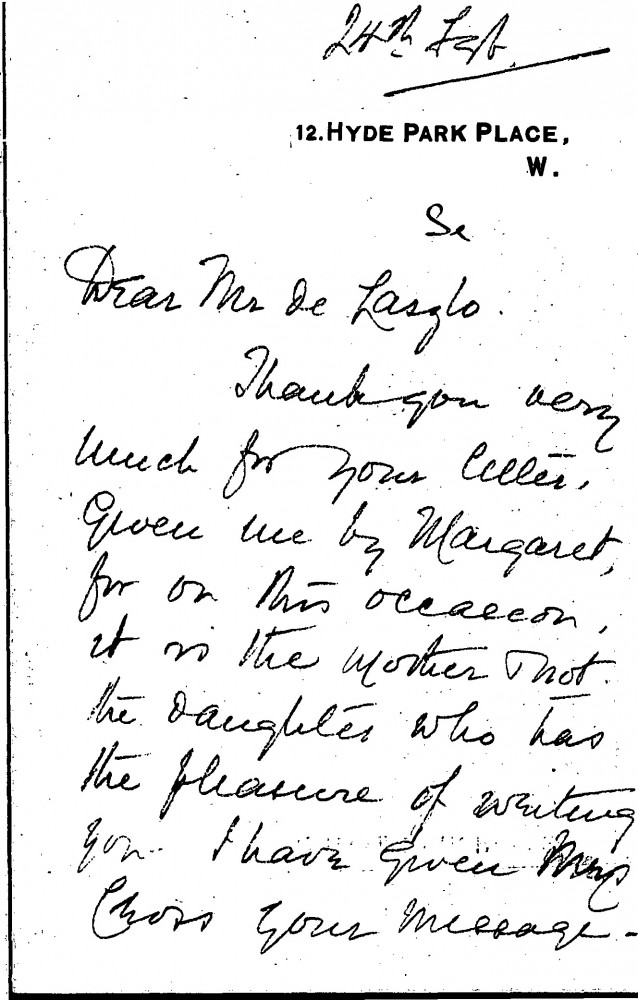 24th Sept.
12. HYDE PARK PLACE,
W.
Se
Dear Mr de Laszlo.
Thank you very
much for your letter,
Given me by Margaret,
for on this occasion,
it is the mother & not
the daughter who has
the pleasure of writing
you. I have given Mrs
Cross your message -